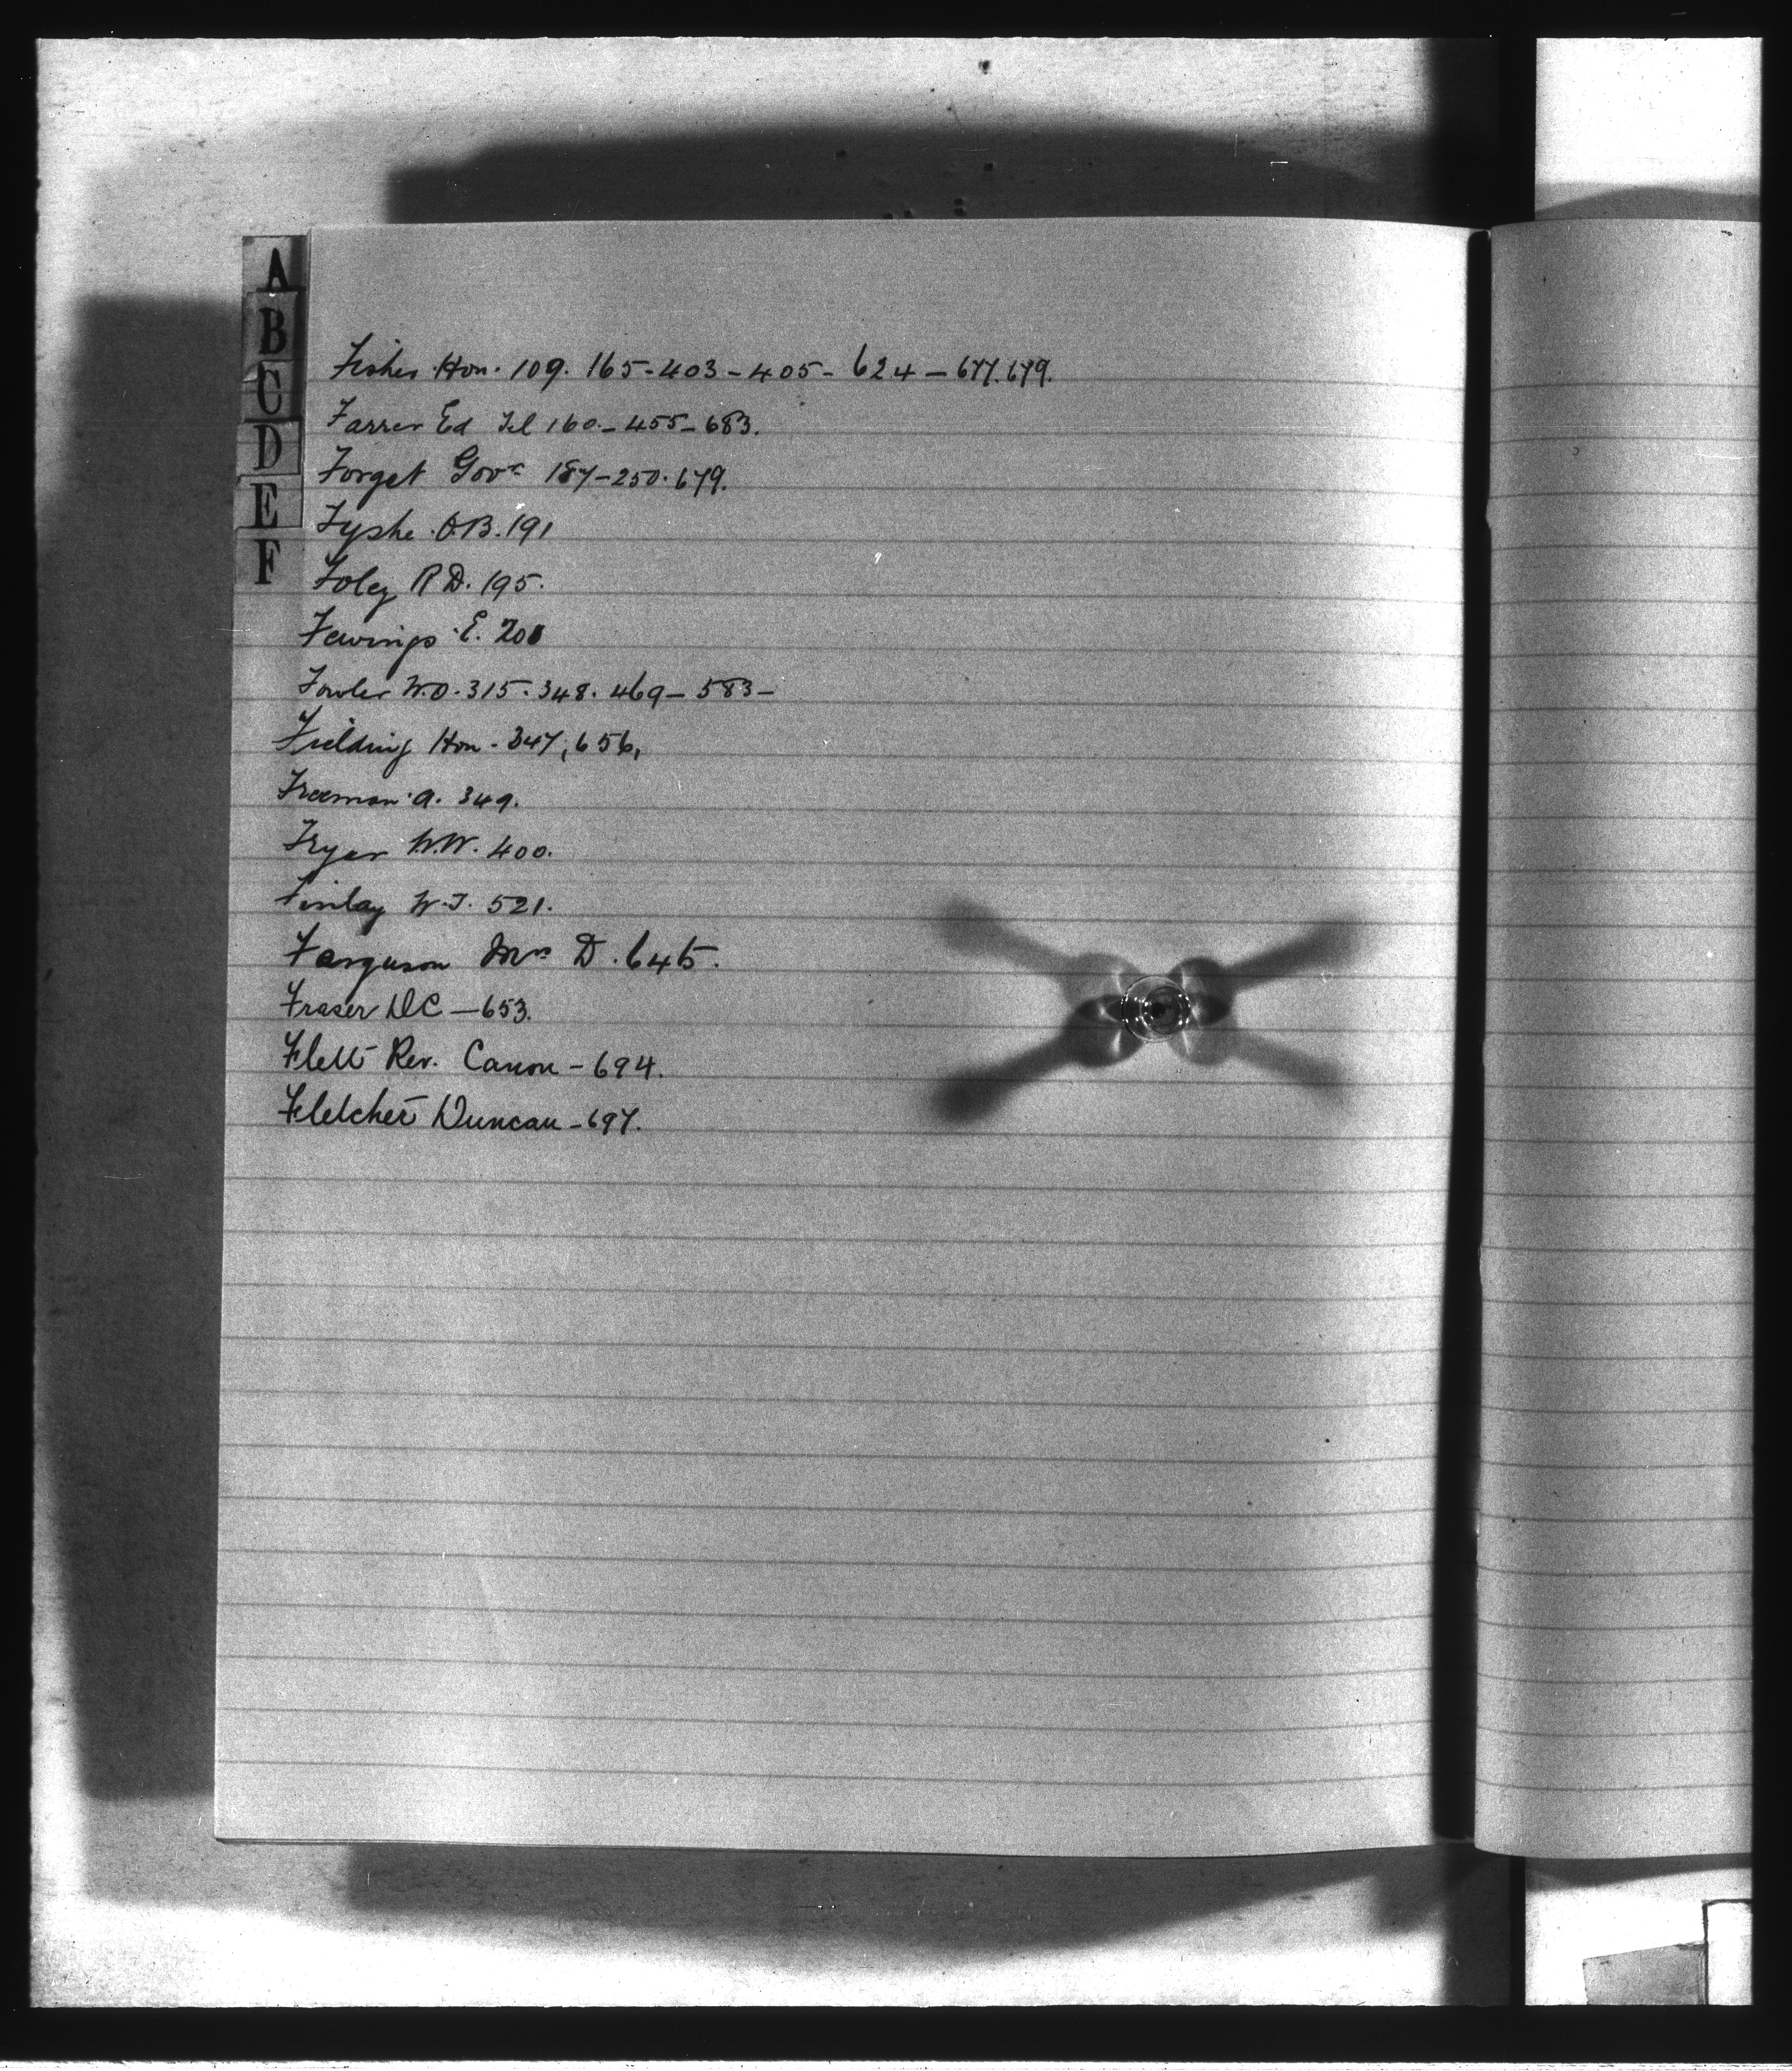 A
B
C
D
E
F
Fisher Hon. 109. 165-403-405-624-677.679.
Farrer Ed Tel 160-455-683.
Forget Govr 187-250.679.
Fyshe O.B. 191
Foley R D. 195.
Fewings E. 200
Fowler W.O. 315.348.469-583-
Fielding Hon. 347, 656,
Freeman A. 349.
Fryer W.W. 400.
Finlay W.J. 521.
Ferguson Mrs D. 645.
Fraser DC-653.
Flett Rev. Canon-694.
Fletcher Duncan-697.